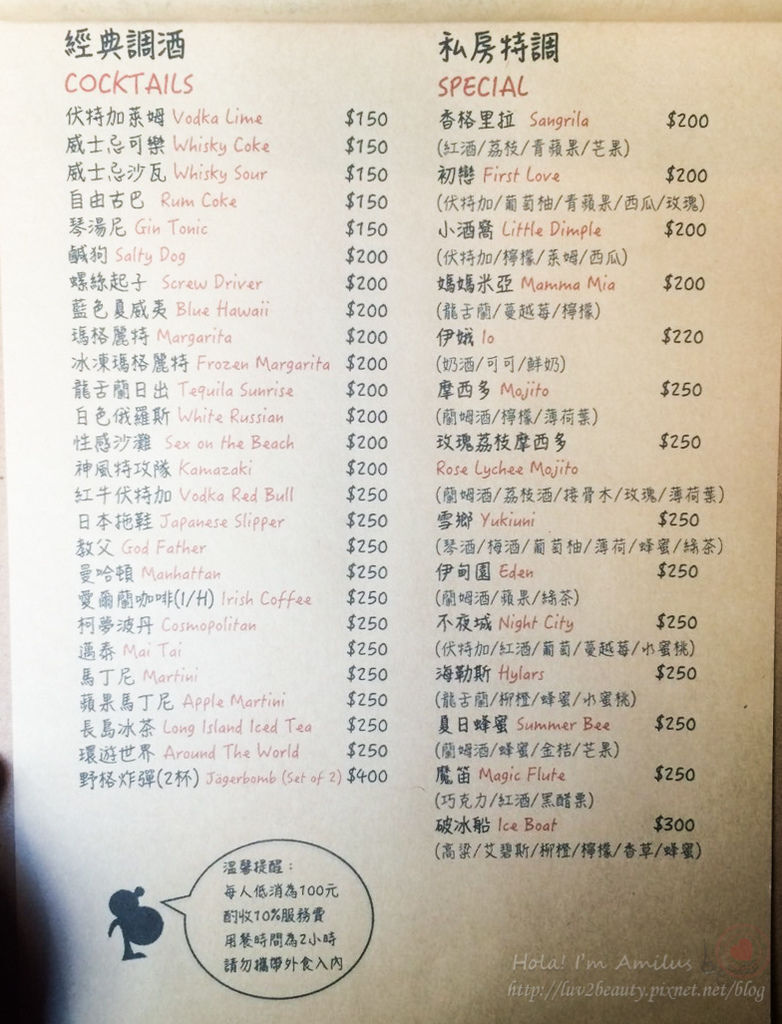 經典調酒
COCKTAILS
伏特加萊姆 Vodka Lime $150
威士忌可樂 Whisky Coke $150
威士忌沙瓦 Whisky Sour $150
自由古巴 Rum Coke $150
琴湯尼 Gin Tonic $150
鹹狗 Salty Dog $200
螺絲起子 Screw Driver $200
藍色夏威夷 Blue Hawaii $200
瑪格麗特 Margarita $200
冰凍瑪格麗特 Frozen Margarita $200
龍舌蘭日出 Tequila Sunrise $200
白色俄羅斯 White Russian $200
性感沙灘 Sex on the Beach $200
神風特攻隊 Kamazaki $200
紅牛伏特加 Vodka Red Bull $250
日本拖鞋 Japanese Slipper $250
教父 God Father $250
曼哈頓 Manhattan $250
愛爾蘭咖啡(I/H) Irish Coffee $250
柯夢波丹 Cosmopolitan $250
邁泰 Mai Tai $250
馬丁尼 Martini $250
蘋果馬丁尼 Apple Martini $250
長島冰茶 Long Island Iced Tea $250
環遊世界 Around The World $250
野格炸彈(2杯) Jägerbomb (Set of 2) $400
私房特調
SPECIAL
香格里拉 Sangrila $200
(紅酒/荔枝/青蘋果/芒果)
初戀 First Love $200
(伏特加/葡萄柚/青蘋果/西瓜/玫瑰)
小酒窩 Little Dimple $200
(伏特加/檸檬/萊姆/西瓜)
媽媽米亞 Mamma Mia $200
(龍舌蘭/蔓越莓/檸檬)
伊娥 Io $220
(奶酒/可可/鮮奶)
摩西多 Mojito $250
(蘭姆酒/檸檬/薄荷葉)
玫瑰荔枝摩西多 $250
Rose Lychee Mojito
(蘭姆酒/荔枝酒/接骨木/玫瑰/薄荷葉)
雪鄉 Yukiuni $250
(琴酒/梅酒/葡萄柚/薄荷/蜂蜜/綠茶)
伊甸園 Eden $250
(蘭姆酒/蘋果/綠茶)
不夜城 Night City $250
(伏特加/紅酒/葡萄/蔓越莓/水蜜桃)
海勒斯 Hylars $250
(龍舌蘭/柳橙/蜂蜜/水蜜桃)
夏日蜂蜜 Summer Bee $250
(蘭姆酒/蜂蜜/金桔/芒果)
魔笛 Magic Flute $250
(巧克力/紅酒/黑醋栗)
破冰船 Ice Boat $300
(高粱/艾碧斯/柳橙/檸檬/香草/蜂蜜)
溫馨提醒：
每人低消為100元
酌收10%服務費
用餐時間為2小時
請勿攜帶外食入內
Hola! I'm Amilus
http://luv2beauty.pixnet.net/blog